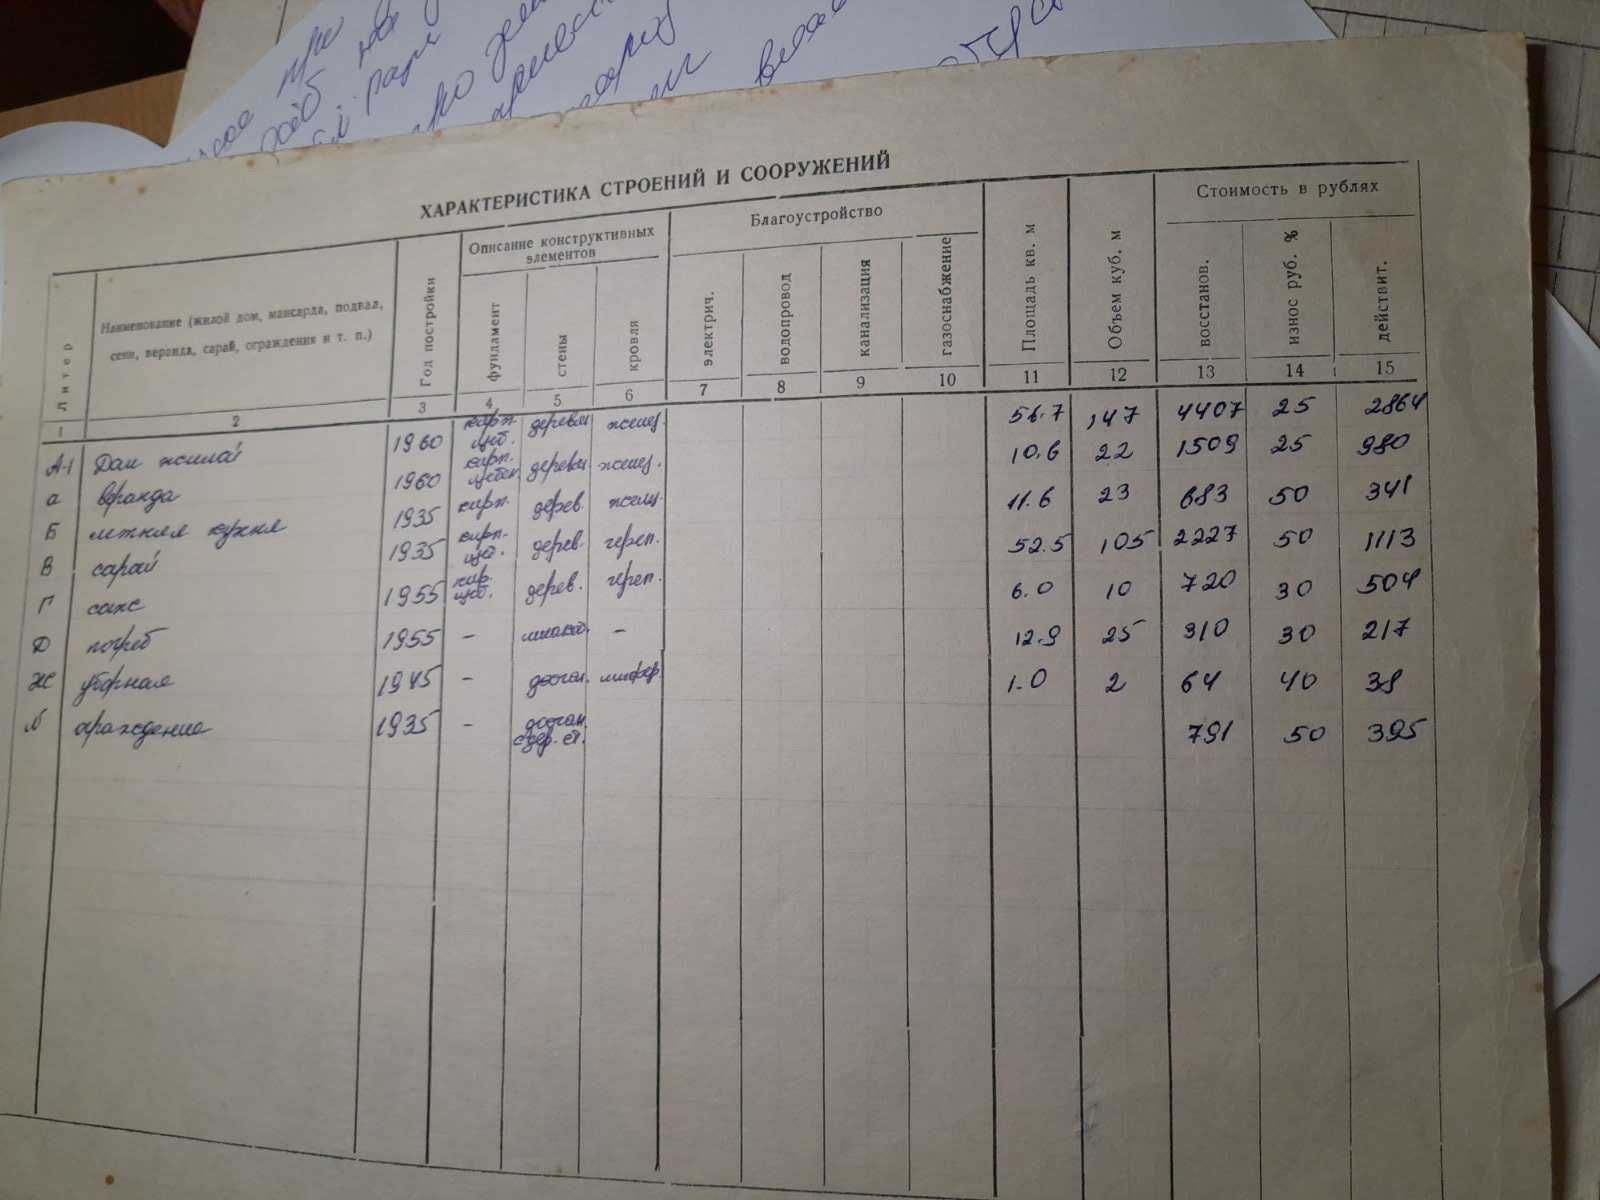 ХАРАКТЕРИСТИКА СТРОЕНИЙ И СООРУЖЕНИЙ
Литер
Наименование (жилой дом, мансарда, подвал,
сени, веранда, сарай, ограждения и т. п.)
Год постройки
Описание конструктивных
элементов
фундамент
стены
кровля
Благоустройство
электрич.
водопровод
канализация
газоснабжение
Площадь кв. м
Объем куб. м
Стоимость в рублях
восстанов.
износ руб. %
действит.
1 2 3 4 5 6 7 8 9 10 11 12 13 14 15
А-1 Дом жилой 1960 кирп. деревян. 56.7 147 4407 25 2864
а веранда 1960 кирп. деревян. 10.6 22 1509 25 980
Б летняя кухня 1935 кирп. дерев. 11.6 23 683 50 341
В сарай 1935 кирп. дерев. череп. 52.5 105 2227 50 1113
Г 1955 кир. дерев. череп. 6.0 10 720 30 504
Д погреб 1955 – – 12.9 25 310 30 217
Ж уборная 1945 – дощан. шифер 1.0 2 64 40 38
ограждение 1935 – дощан. 791 50 395
с дер. ст.